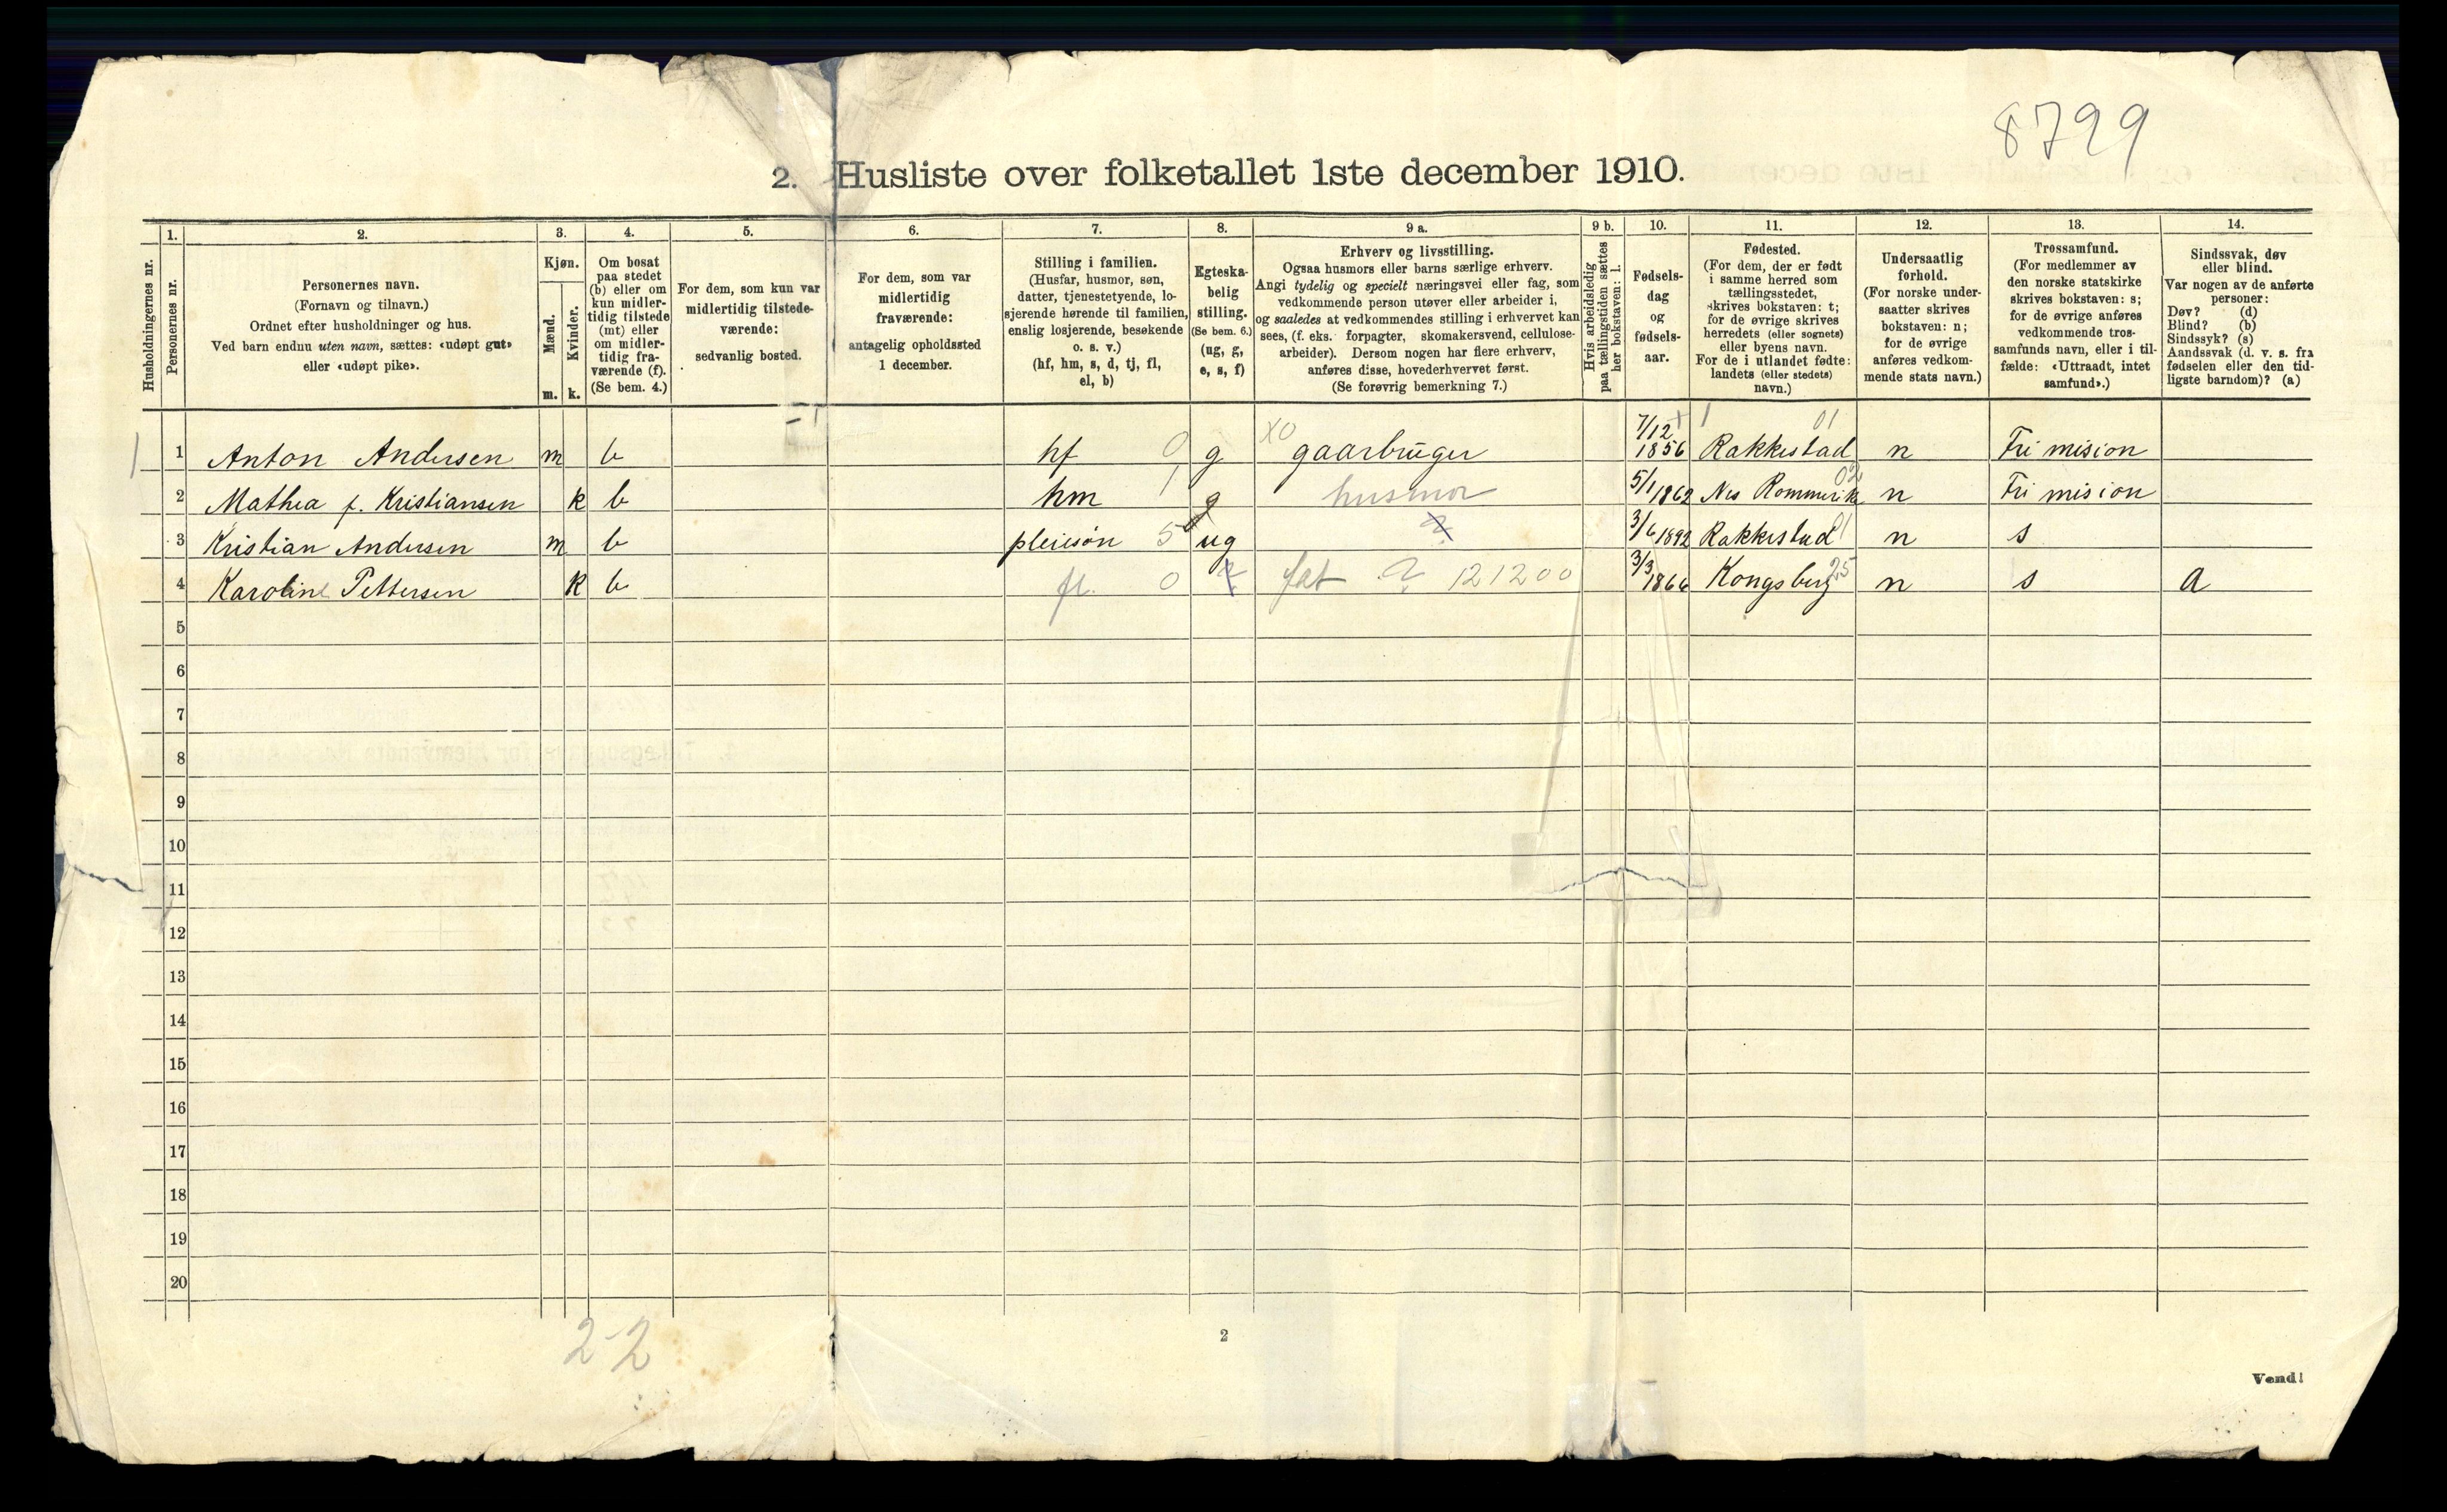 8799
2. Husliste over folketallet 1ste december 1910.
Husholdningernes nr.
1. Personernes nr.
2. Personernes navn.
(Fornavn og tilnavn.)
Ordnet efter husholdninger og hus.
Ved barn endnu uten navn, sættes: «udøpt gut»
eller «udøpt pike».
3. Kjøn.
Mænd. m.
Kvinder. k.
4. Om bosat
paa stedet
(b) eller om
kun midler-
tidig tilstede
(mt) eller
om midler-
tidig fra-
værende (f).
(Se bem. 4.)
5. For dem, som kun var
midlertidig tilstede-
værende:
sedvanlig bosted.
6. For dem, som var
midlertidig
fraværende:
antagelig opholdssted
1 december.
7. Stilling i familien.
(Husfar, husmor, søn,
datter, tjenestetyende, lo-
sjerende hørende til familien,
enslig losjerende, besøkende
o. s. v.)
(hf, hm, s, d, tj, fl,
el, b)
8. Egteska-
belig
stilling.
(Se bem. 6.)
(ug, g,
e, s, f)
9 a. Erhverv og livsstilling.
Ogsaa husmors eller barns særlige erhverv.
Angi tydelig og specielt næringsvei eller fag, som
vedkommende person utøver eller arbeider i,
og saaledes at vedkommendes stilling i erhvervet kan
sees, (f. eks. forpagter, skomakersvend, cellulose-
arbeider). Dersom nogen har flere erhverv,
anføres disse, hovederhvervet først.
(Se forøvrig bemerkning 7.)
9 b. Hvis arbeidsledig
paa tællingstiden sættes
her bokstaven: l.
10. Fødsels-
dag
og
fødsels-
aar.
11. Fødested.
(For dem, der er født
i samme herred som
tællingsstedet,
skrives bokstaven: t;
for de øvrige skrives
herredets (eller sognets)
eller byens navn.
For de i utlandet fødte:
landets (eller stedets)
navn.)
12. Undersaatlig
forhold.
(For norske under-
saatter skrives
bokstaven: n;
for de øvrige
anføres vedkom-
mende stats navn.)
13. Trossamfund.
(For medlemmer av
den norske statskirke
skrives bokstaven: s;
for de øvrige anføres
vedkommende tros-
samfunds navn, eller i til-
fælde: «Uttraadt, intet
samfund».)
14. Sindssvak, døv
eller blind.
Var nogen av de anførte
personer:
Døv? (d)
Blind? (b)
Sindssyk? (s)
Aandssvak (d. v. s. fra
fødselen eller den tid-
ligste barndom)? (a)
1 Anton Andersen m b hf 0 g X0 gaarbruger 7/12 1856 Rakkestad 01 n Fri mision
2 Mathea f. Kristiansen k b hm 1 g husmor 5/1 1862 Nes Rommerike 02 n Fri mision
3 Kristian Andersen m b pleiesøn 5 ug 3/6 1892 Rakkestad 01 n s
4 Karoline Pettersen k b fl. 0 fat ? 121200 3/3 1866 Kongsberg 25 n s a
5
6
7
8
9
10
11
12
13
14
15
16
17
18
19
20
2-2
2
Vend!